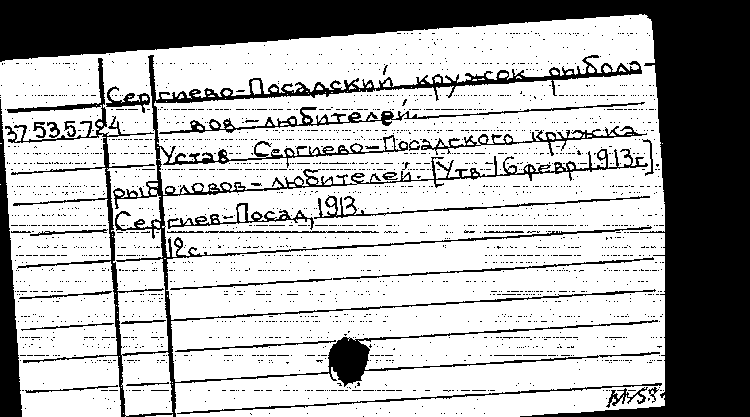 Сергиево-Посадский кружок рыболо-
37.53.5.724 вов-любителей.
Устав Сергиево-Посадского кружка
рыболовов-любителей. [Утв. 16 февр. 1913г.].
Сергиев-Посад, 1913.
12с.